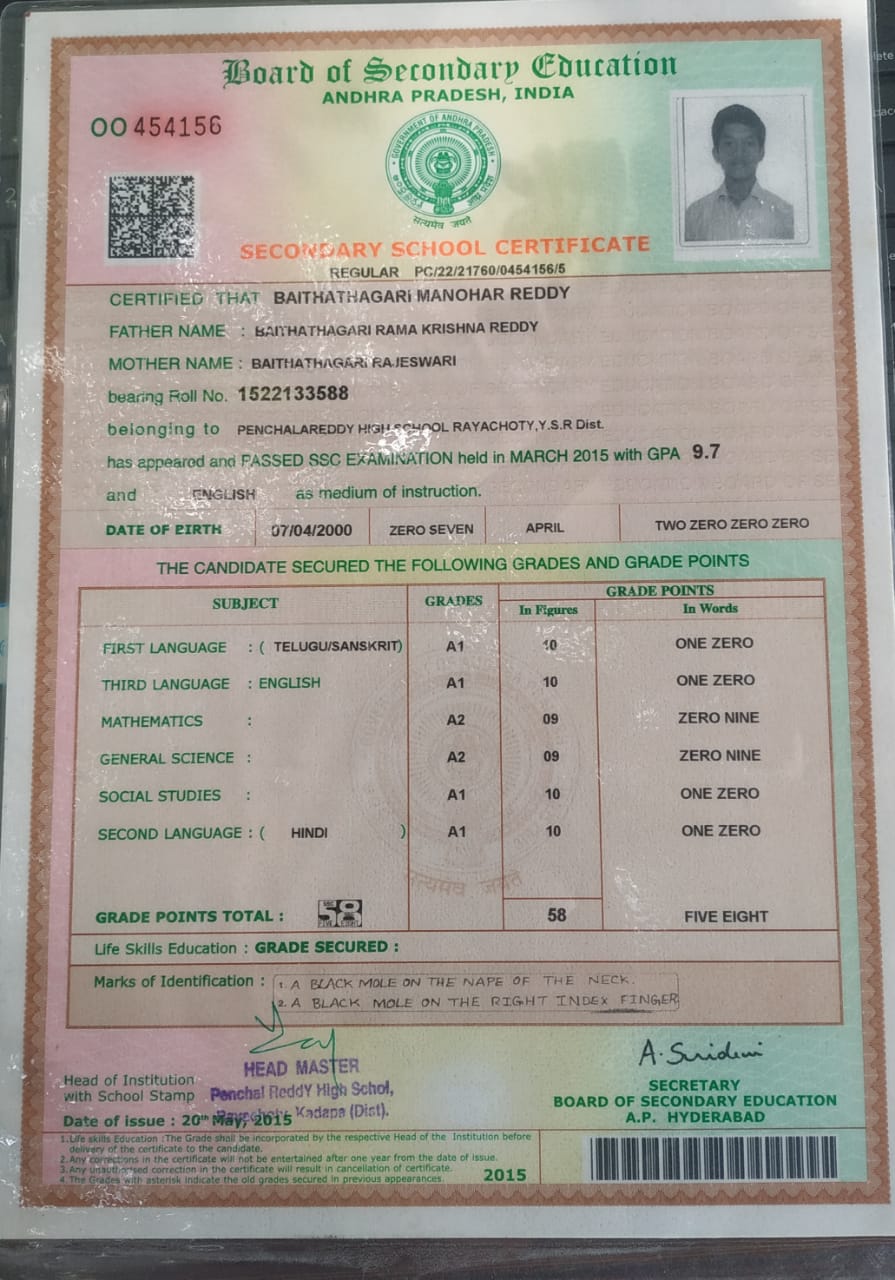 Board of Secondary Education
ANDHRA PRADESH, INDIA
OO 454156
GOVERNMENT OF ANDHRA PRADESH
सत्यमेव जयते
SECONDARY SCHOOL CERTIFICATE
REGULAR PC/22/21760/0454156/5
CERTIFIED THAT BAITHATHAGARI MANOHAR REDDY
FATHER NAME : BAITHATHAGARI RAMA KRISHNA REDDY
MOTHER NAME : BAITHATHAGARI RAJESWARI
bearing Roll No. 1522133588
belonging to PENCHALAREDDY HIGH SCHOOL RAYACHOTY,Y.S.R Dist.
has appeared and PASSED SSC EXAMINATION held in MARCH 2015 with GPA 9.7
and ENGLISH as medium of instruction.
DATE OF BIRTH 07/04/2000 ZERO SEVEN APRIL TWO ZERO ZERO ZERO
THE CANDIDATE SECURED THE FOLLOWING GRADES AND GRADE POINTS
SUBJECT GRADES GRADE POINTS
In Figures In Words
FIRST LANGUAGE : ( TELUGU/SANSKRIT) A1 10 ONE ZERO
THIRD LANGUAGE : ENGLISH A1 10 ONE ZERO
MATHEMATICS : A2 09 ZERO NINE
GENERAL SCIENCE : A2 09 ZERO NINE
SOCIAL STUDIES : A1 10 ONE ZERO
SECOND LANGUAGE : ( HINDI ) A1 10 ONE ZERO
सत्यमेव जयते
GRADE POINTS TOTAL : 58 58 FIVE EIGHT
FIVE EIGHT
Life Skills Education : GRADE SECURED :
Marks of Identification : 1. A BLACK MOLE ON THE NAPE OF THE NECK.
2. A BLACK MOLE ON THE RIGHT INDEX FINGER
A. Sridevi
HEAD MASTER
Penchal ReddY High Schol,
Rayachoty, Kadapa (Dist).
Head of Institution
with School Stamp
Date of issue : 20th May, 2015
SECRETARY
BOARD OF SECONDARY EDUCATION
A.P. HYDERABAD
1.Life skills Education :The Grade shall be incorporated by the respective Head of the Institution before
delivery of the certificate to the candidate.
2.Any corrections in the certificate will not be entertained after one year from the date of issue.
3.Any unauthorised correction in the certificate will result in cancellation of certificate.
4.The Grades with asterisk indicate the old grades secured in previous appearances.
2015